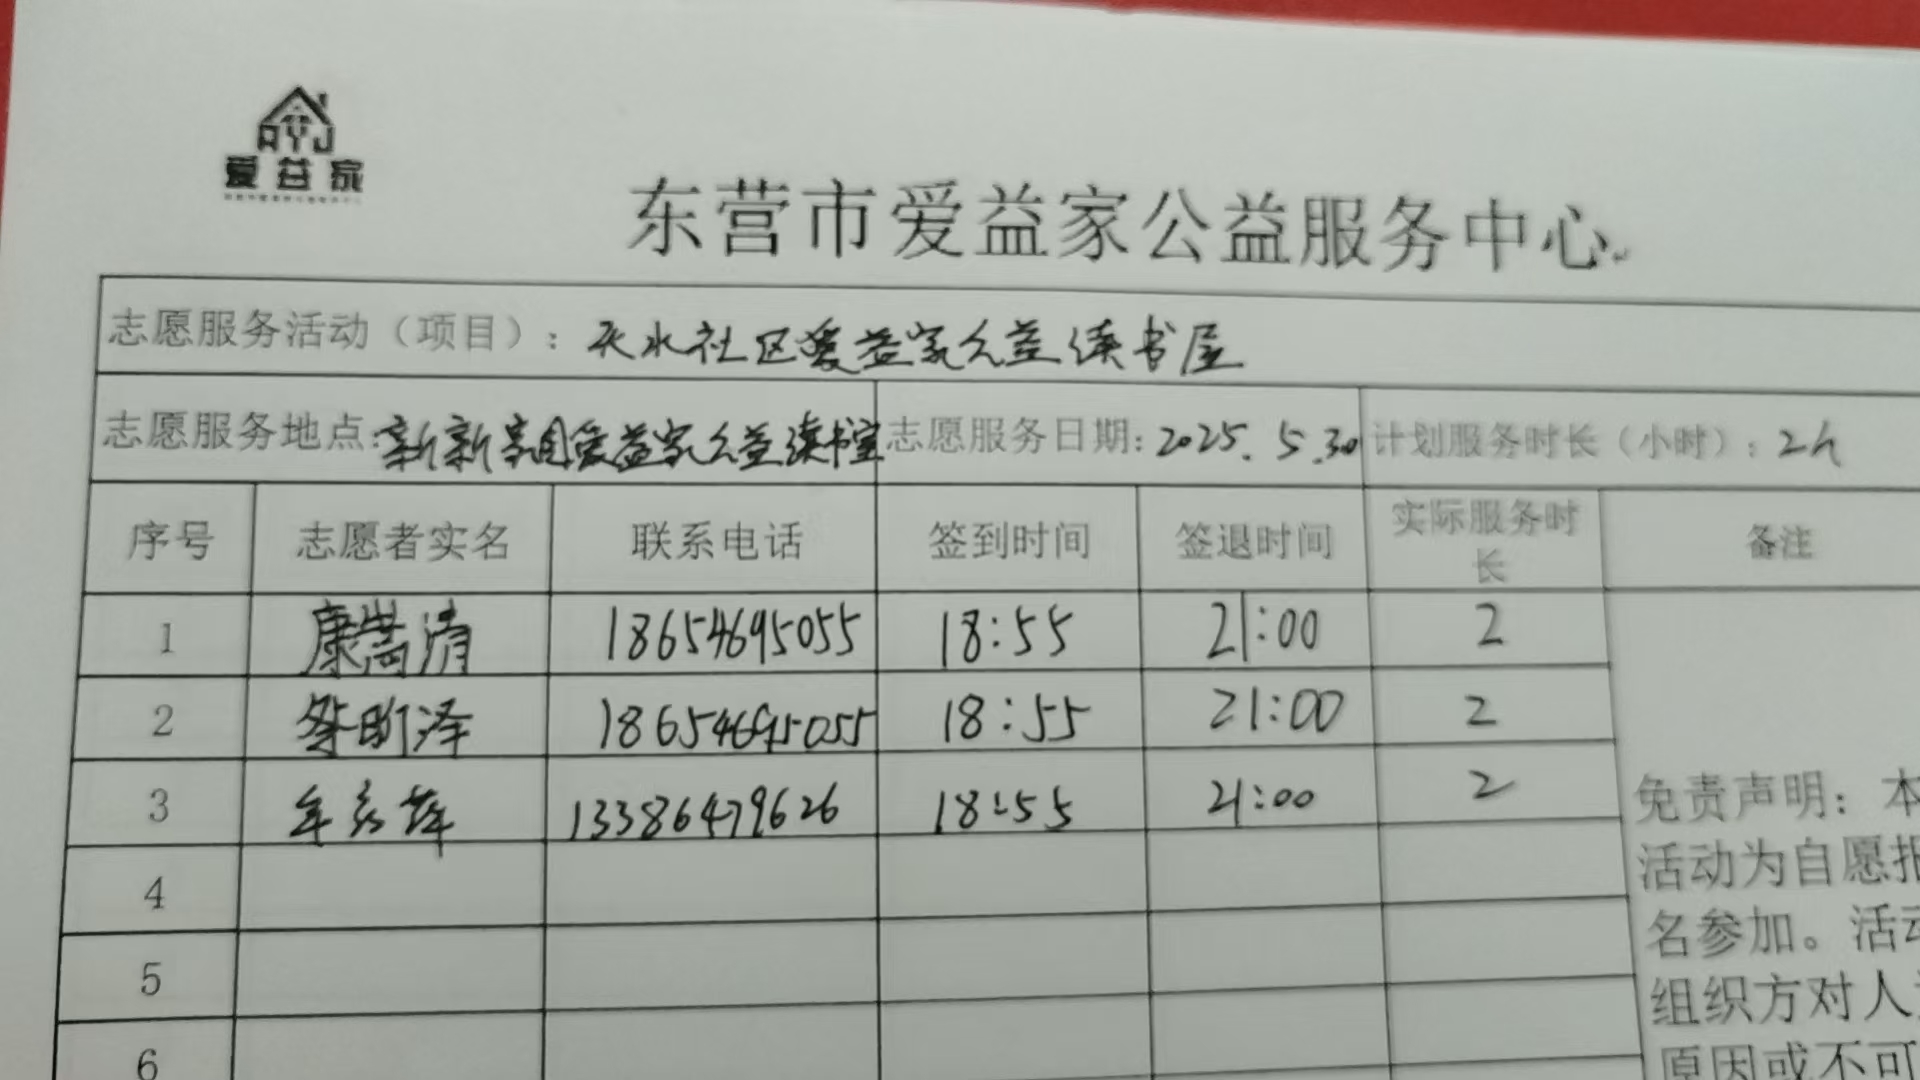 AYJ
爱益家
东营市爱益家公益服务中心
志愿服务活动（项目）：天水社区爱益家公益读书屋
志愿服务地点:新新家园爱益家公益读书室 志愿服务日期:2025.5.30 计划服务时长（小时）：2h
序号 志愿者实名 联系电话 签到时间 签退时间 实际服务时长 备注
1 康嵩清 18654695055 18:55 21:00 2
2 昕泽 18654695055 18:55 21:00 2
3 牟 萍 13386479626 18:55 21:00 2
4
5
6
免责声明：本
活动为自愿报
名参加。活动
组织方对人
原因或不可